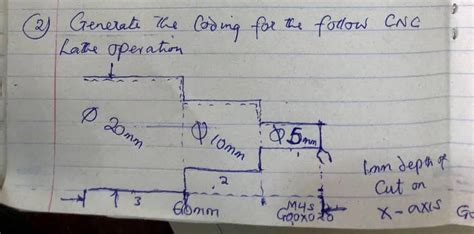 ② Generate the Coding for the follow CNC
Lathe operation
Φ 20mm
Φ 10mm
Φ 5mm
1mm depth of
Cut on
x-axis
3
2
60mm
M4S
G00X0Z0